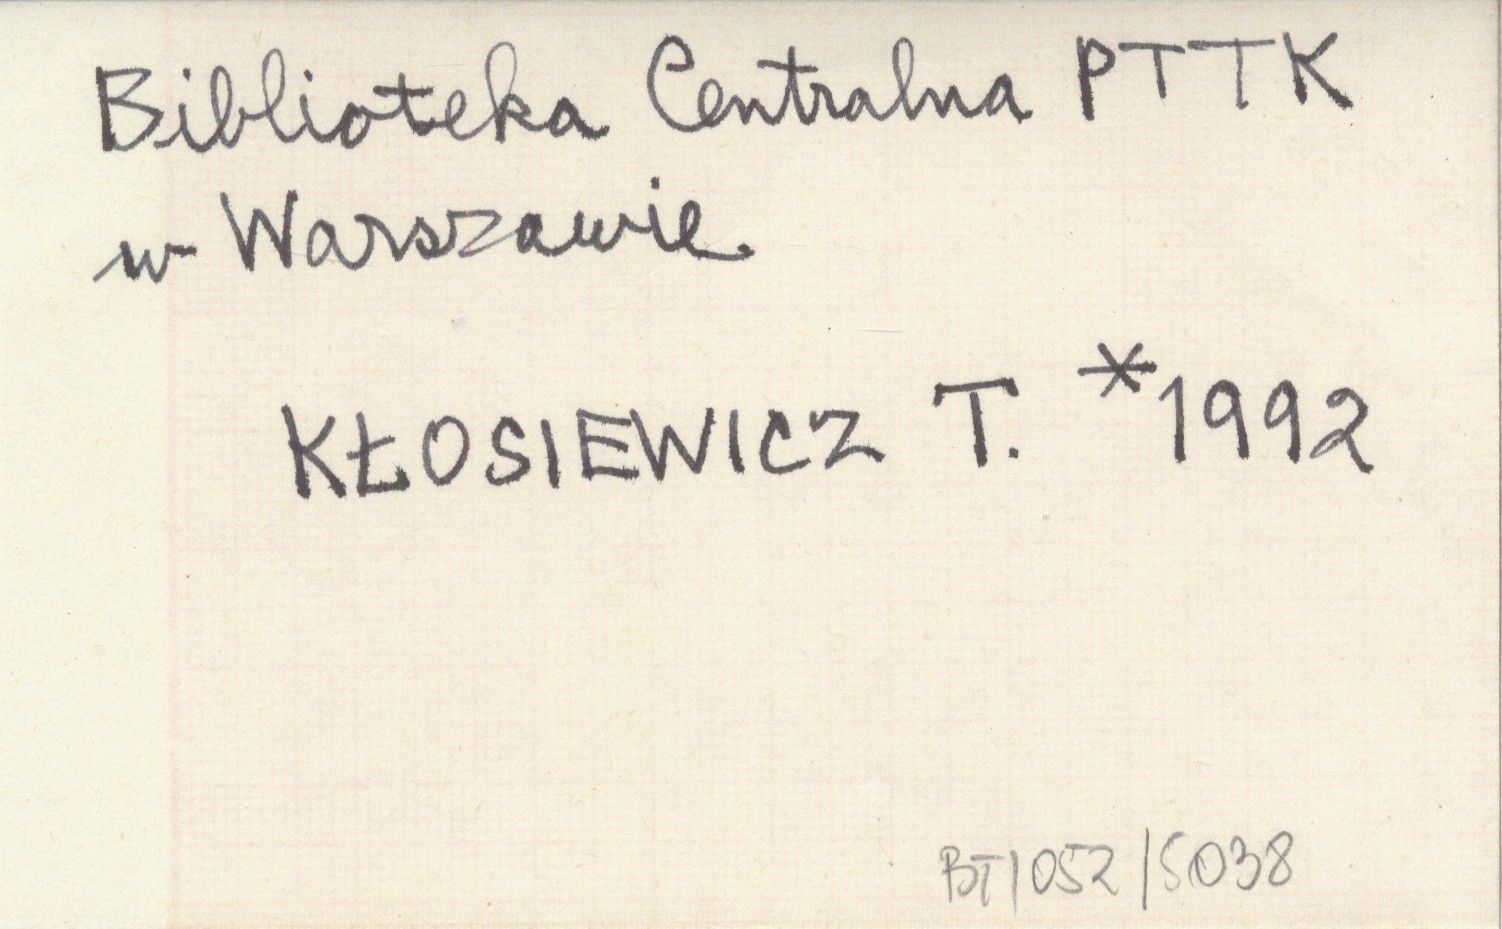 Biblioteka Centralna PTTK
w Warszawie
KŁOSIEWICZ T. *1992
BT/052/5038